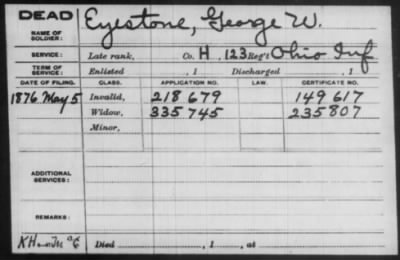 DEAD
NAME OF SOLDIER: Eyestone, George W.
SERVICE: Late rank, Co. H, 123 Reg't Ohio Inf
TERM OF SERVICE: Enlisted , 1 Discharged , 1
DATE OF FILING. CLASS. APPLICATION NO. LAW. CERTIFICATE NO.
1876 May 5 Invalid, 218 679 149 617
Widow, 335 745 235 807
Minor,
ADDITIONAL SERVICES:
REMARKS:
Died , 1 , at